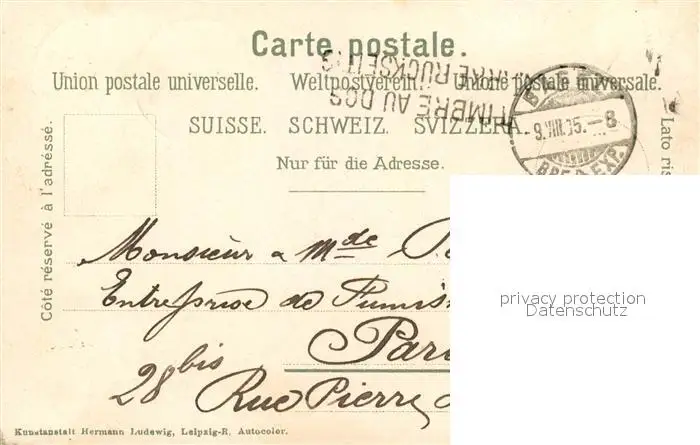 Carte postale.
Union postale universelle. Weltpostverein. Unione postale universale.
TIMBRE AU DOS
MARKE RÜCKSEITS
SUISSE. SCHWEIZ. SVIZZERA.
Nur für die Adresse.
Côté réservé à l'adréssé.
Lato ris
BASEL
9.VIII.05.-8
BRF.EXP.
Monsieur & Mde
Entreprise de Fumis
Pari
28 bis Rue Pierre
privacy protection
Datenschutz
Kunstanstalt Hermann Ludewig, Leipzig-R. Autocolor.